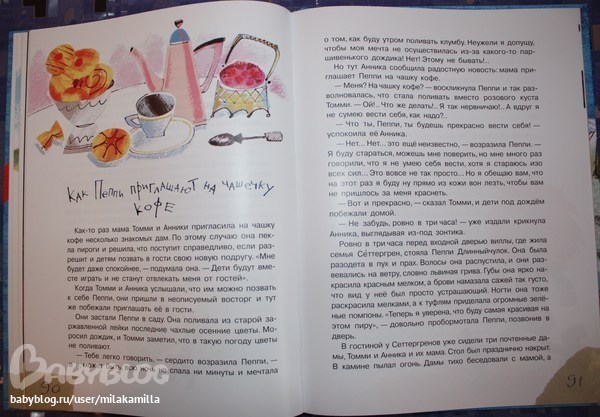 КАК ПЕППИ ПРИГЛАШАЮТ НА ЧАШЕЧКУ
КОФЕ
Как-то раз мама Томми и Анники пригласила на чашку
кофе несколько знакомых дам. По этому случаю она пек-
ла пироги и решила, что поступит справедливо, если раз-
решит и детям позвать в гости свою новую подругу. «Мне
будет даже спокойнее, — подумала она. — Дети будут вме-
сте играть и не станут отвлекать меня от гостей».
Когда Томми и Анника услышали, что им можно позвать
к себе Пеппи, они пришли в неописуемый восторг и тут
же побежали приглашать её в гости.
Они застали Пеппи в саду. Она поливала из старой за-
ржавленной лейки последние чахлые осенние цветы. Мо-
росил дождик, и Томми заметил, что в такую погоду цветы
не поливают.
— Тебе легко говорить, — сердито возразила Пеппи, —
может быть, всю ночь не спала ни минуты и мечтала
90
о том, как буду утром поливать клумбу. Неужели я допущу,
чтобы моя мечта не осуществилась из-за какого-то пар-
шивенького дождика! Нет! Этому не бывать!..
Но тут Анника сообщила радостную новость: мама при-
глашает Пеппи на чашку кофе.
— Меня? На чашку кофе? — воскликнула Пеппи и так раз-
волновалась, что стала поливать вместо розового куста
Томми. — Ой!.. Что же делать!.. Я так нервничаю!.. А вдруг я
не сумею вести себя, как надо?..
— Что ты, Пеппи, ты будешь прекрасно вести себя! —
успокоила её Анника.
— Нет... Нет... это ещё неизвестно, — возразила Пеппи. —
Я буду стараться, можешь мне поверить, но мне много раз
говорили, что я не умею себя вести, хотя я стараюсь изо
всех сил... Это вовсе не так просто... Но я обещаю вам, что
на этот раз я буду ну прямо из кожи вон лезть, чтобы вам
не пришлось за меня краснеть.
— Вот и прекрасно, — сказал Томми, и дети под дождём
побежали домой.
— Не забудь, ровно в три часа! — уже издали крикнула
Анника, выглядывая из-под зонтика.
Ровно в три часа перед входной дверью виллы, где жила
семья Сеттергрен, стояла Пеппи Длинныйчулок. Она была
разодета в пух и прах. Волосы она распустила, и они раз-
вевались на ветру, словно львиная грива. Губы она ярко на-
красила красным мелком, а брови намазала сажей так густо,
что вид у неё был просто устрашающий. Ногти она тоже
раскрасила мелками, а к туфлям приделала огромные зелё-
ные помпоны. «Теперь я уверена, что буду самая красивая на
этом пиру», — довольно пробормотала Пеппи, позвонив в
дверь.
В гостиной у Сеттергренов уже сидели три почтенные да-
мы, Томми и Анника и их мама. Стол был празднично накрыт.
В камине пылал огонь. Дамы тихо беседовали с мамой, а
91
BABYBLOG
babyblog.ru/user/milakamilla